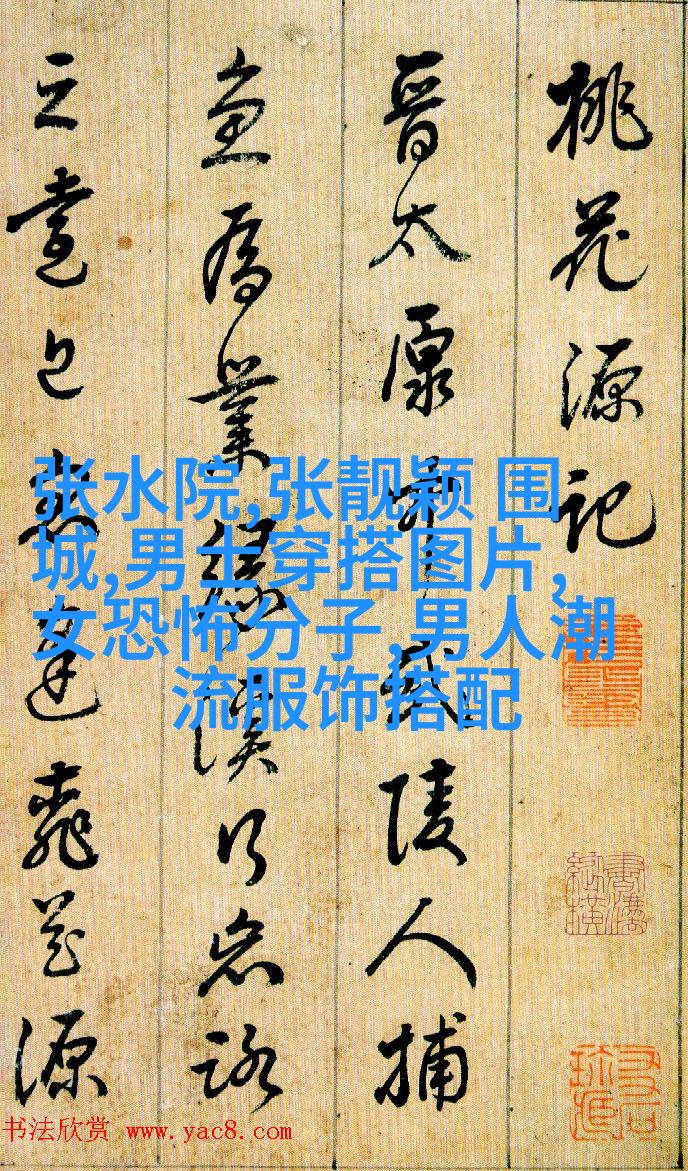 桃花源記
晉太原中武陵人捕
魚為業緣溪行忘路
之遠近忽逢花源
张水院,张靓颖 围
城,男士穿搭图片,
女恐怖分子,男人潮
流服饰搭配
书法欣赏 www.yac8.com